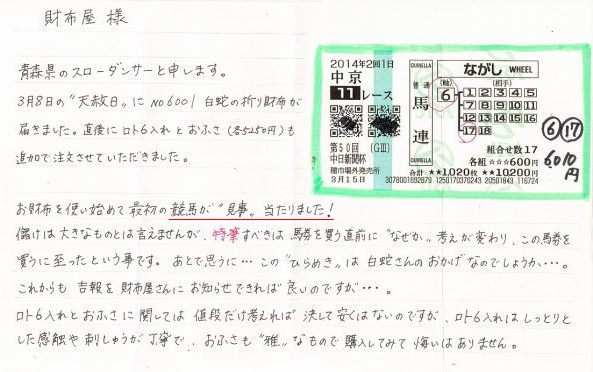 財布屋 様
青森県のスローダンサーと申します。
3月8日の"天赦日"に NO6001 白蛇の折り財布が
届きました。直後にロト6入れとおふさ(各5250円)も
追加で注文させていただきました。
2014年2回1日
中京
11レース
第50回 (GⅢ)
中日新聞杯
種市場外発売所
3月15日
QUINELLA
普通
馬連
QUINELLA
ながし WHEEL
(軸) (相手)
6 1 2 3 4 5
7 8 9 10 11 12
13 14 15 16
17 18
組合せ数17
各組 ☆☆☆600円
合計 ★★1,020枚 ★★10200円
⑥ ⑰
6010円
お財布を使い始めて最初の競馬が"見事"当たりました!
儲けは大きなものとは言えませんが、特筆すべきは 馬券を買う直前に"なぜか"考えが変わり、この馬券を
買うに至ったという事です。 あとで思うに… この"ひらめき"は 白蛇さんのおかげなのでしょうか…。
これからも 吉報を 財布屋さんに お知らせできれば 良いのですが…。
ロト6入れとおふさに関しては 値段だけ考えれば 決して安くはないのですが、ロト6入れはしっとりと
した感触や 刺しゅうが丁寧で、おふさも"雅"なもので購入してみて 悔いはありません。